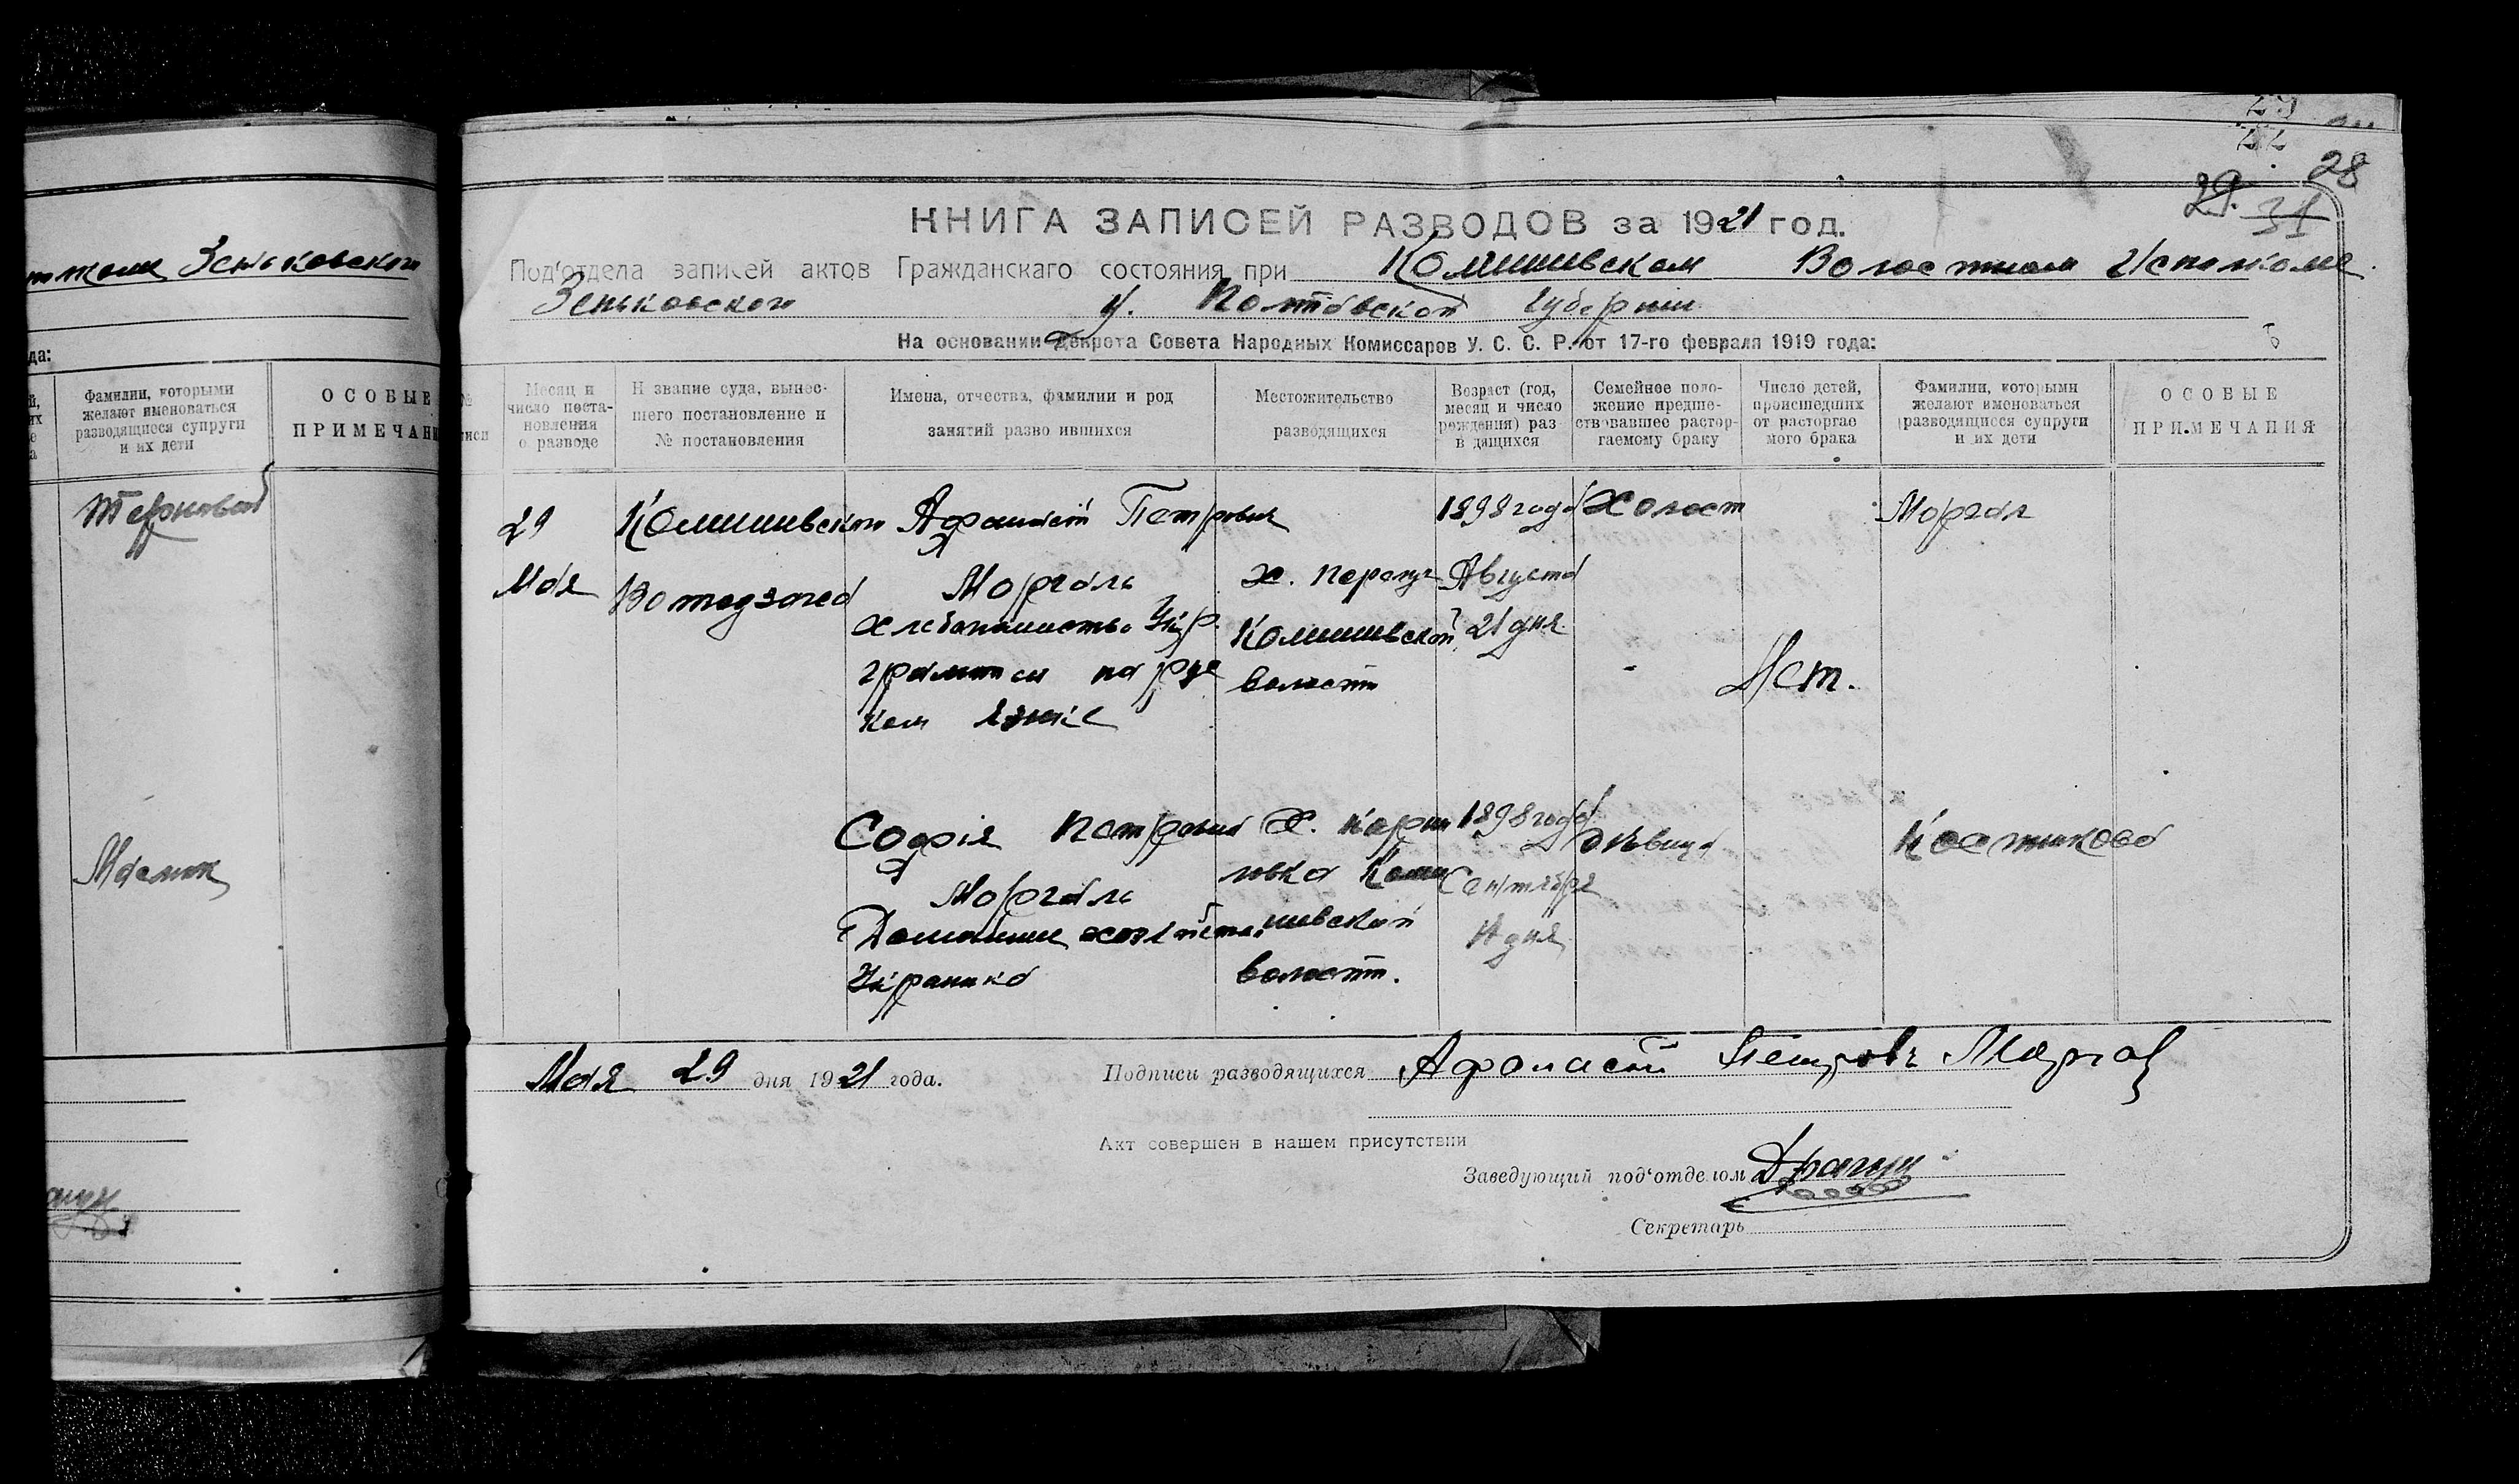 ткоме Зеньковского
да:
Фамилии, которыми
желают именоваться
разводящиеся супруги
и их дети
ОСОБЫЕ
ПРИМЕЧАНИ
Терновой
28
29. 31
КНИГА ЗАПИСЕЙ РАЗВОДОВ за 1921 год.
Под'отдела записей актов Гражданскаго состояния при Комишивском Волостном Исполкоме
Зеньковского у. Полтавской Губернии
На основании декрета Совета Народных Комиссаров У. С. С. Р. от 17-го февраля 1919 года:
№
писи
Месяц и
число поста-
новления
о разводе
Н звание суда, вынес-
шего постановление и
№ постановления
Имена, отчества, фамилии и род
занятий разво ившихся
Местожительство
разводящихся
Возраст (год,
месяц и число
рождения) раз
в дящихся
Семейное поло-
жение предше-
ствовавшее растор-
гаемому браку
Число детей,
происшедших
от расторгае
мого брака
Фамилии, которыми
желают именоваться
разводящиеся супруги
и их дети
ОСОБЫЕ
ПРИМЕЧАНИЯ
29
Мая
Комишивским
Афанасій Петрович
Моргаль
хлебопашество Укр.
грамотен на рус
ком языке
х.
Комишивской
волости
1898 года
Августа
21 дня
Холост
Нет.
Моргаль
Софія Петровна
Моргаль
Домашнее хозяйство
Украинка
х.
Коми
шивской
волости.
1898 года
Сентября
дня
Дѣвица
Костикова
Мая 29 дня 1921 года.
Подписи разводящихся Афонасий Петровъ Моргал
Акт совершен в нашем присутствии
Заведующий под'отделом
Секретарь